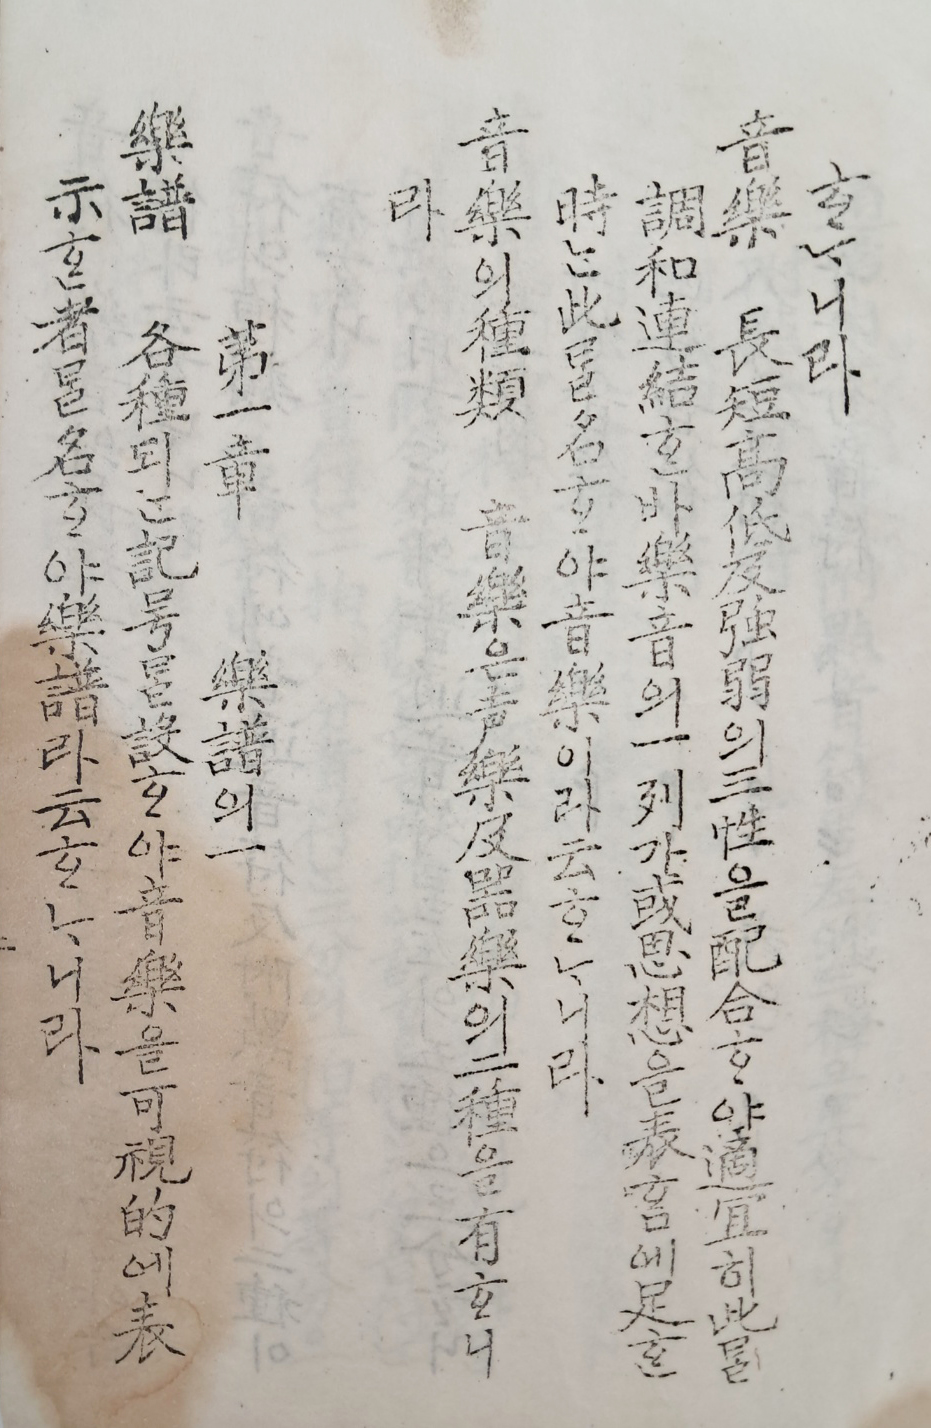 ᄒᆞᄂᆞ니라
音樂 長短高低及強弱의三性을配合ᄒᆞ야適宜히此ᄅᆞᆯ
調和連結ᄒᆞᆫ바樂音의一列가或思想을表言에足ᄒᆞᆫ
時ᄂᆞᆫ此ᄅᆞᆯ名ᄒᆞ야音樂이라云ᄒᆞᄂᆞ니라
音樂의種類 音樂은声樂及器樂의二種을有ᄒᆞ니
라
第一章 樂譜의一
樂譜 各種되ᄂᆞᆫ記号ᄅᆞᆯ設ᄒᆞ야音樂을可視的에表
示ᄒᆞᆫ者ᄅᆞᆯ名ᄒᆞ야樂譜라云ᄒᆞᄂᆞ니라